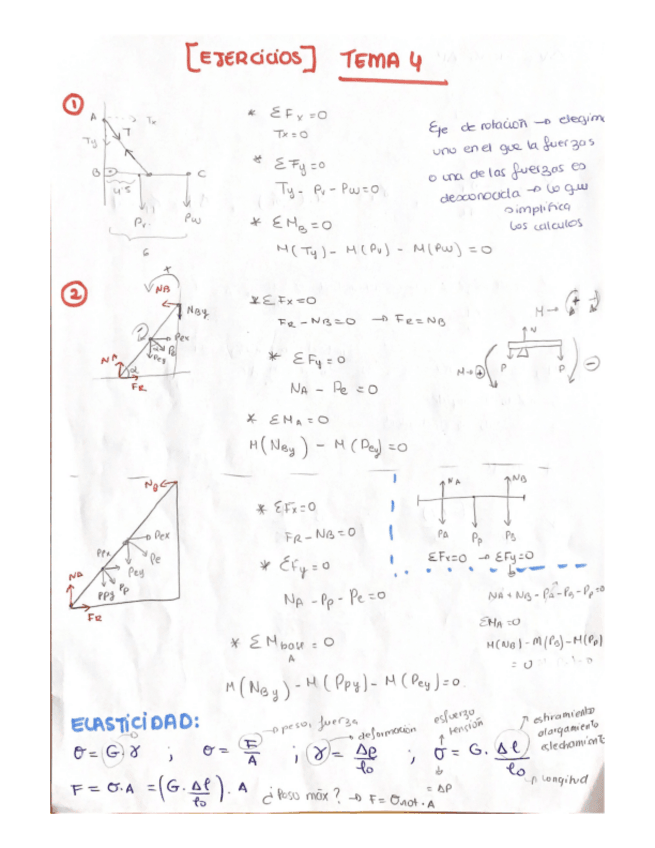 [EJERCICIOS] TEMA 4
①
A Tx
Ty T
B C
4.5
Pv Pw
6
* ΣFx = 0
Tx = 0
* ΣFy = 0
Ty - Pv - Pw = 0
* ΣM_B = 0
M(Ty) - M(Pv) - M(Pw) = 0
Eje de rotación → elegim
uno en el que la fuerzas
o una de las fuerzas es
desconocida → lo que
simplifica
los calculos
②
+
NB
NBy
Pex
Pe
Pey
NA
α
FR
* ΣFx = 0
FR - NB = 0 → FR = NB
* ΣFy = 0
NA - Pe = 0
* ΣM_A = 0
M(NBy) - M(Pey) = 0
M → + -
N
M → + P P -
NB
Pex
PPx Pe
Pey
NA Pp
PPy
FR
* ΣFx = 0
FR - NB = 0
* ΣFy = 0
NA - Pp - Pe = 0
* ΣM base = 0
A
M(NBy) - M(PPy) - M(Pey) = 0.
NA NB
PA Pp PB
ΣFx = 0 → ΣFy = 0
NA + NB - PA - PB - Pp = 0
ΣMA = 0
M(NB) - M(PB) - M(Pp)
= 0
ELASTICIDAD:
σ = G.γ ; σ = F/A → peso, fuerza ; γ = Δl/l₀ → deformación ; σ = G. Δl/l₀
esfuerzo
tensión
estiramiento
alargamiento
estechamiento
longitud
= ΔP
F = σ.A = (G. Δl/l₀). A ¿Peso máx? → F = σrot.A